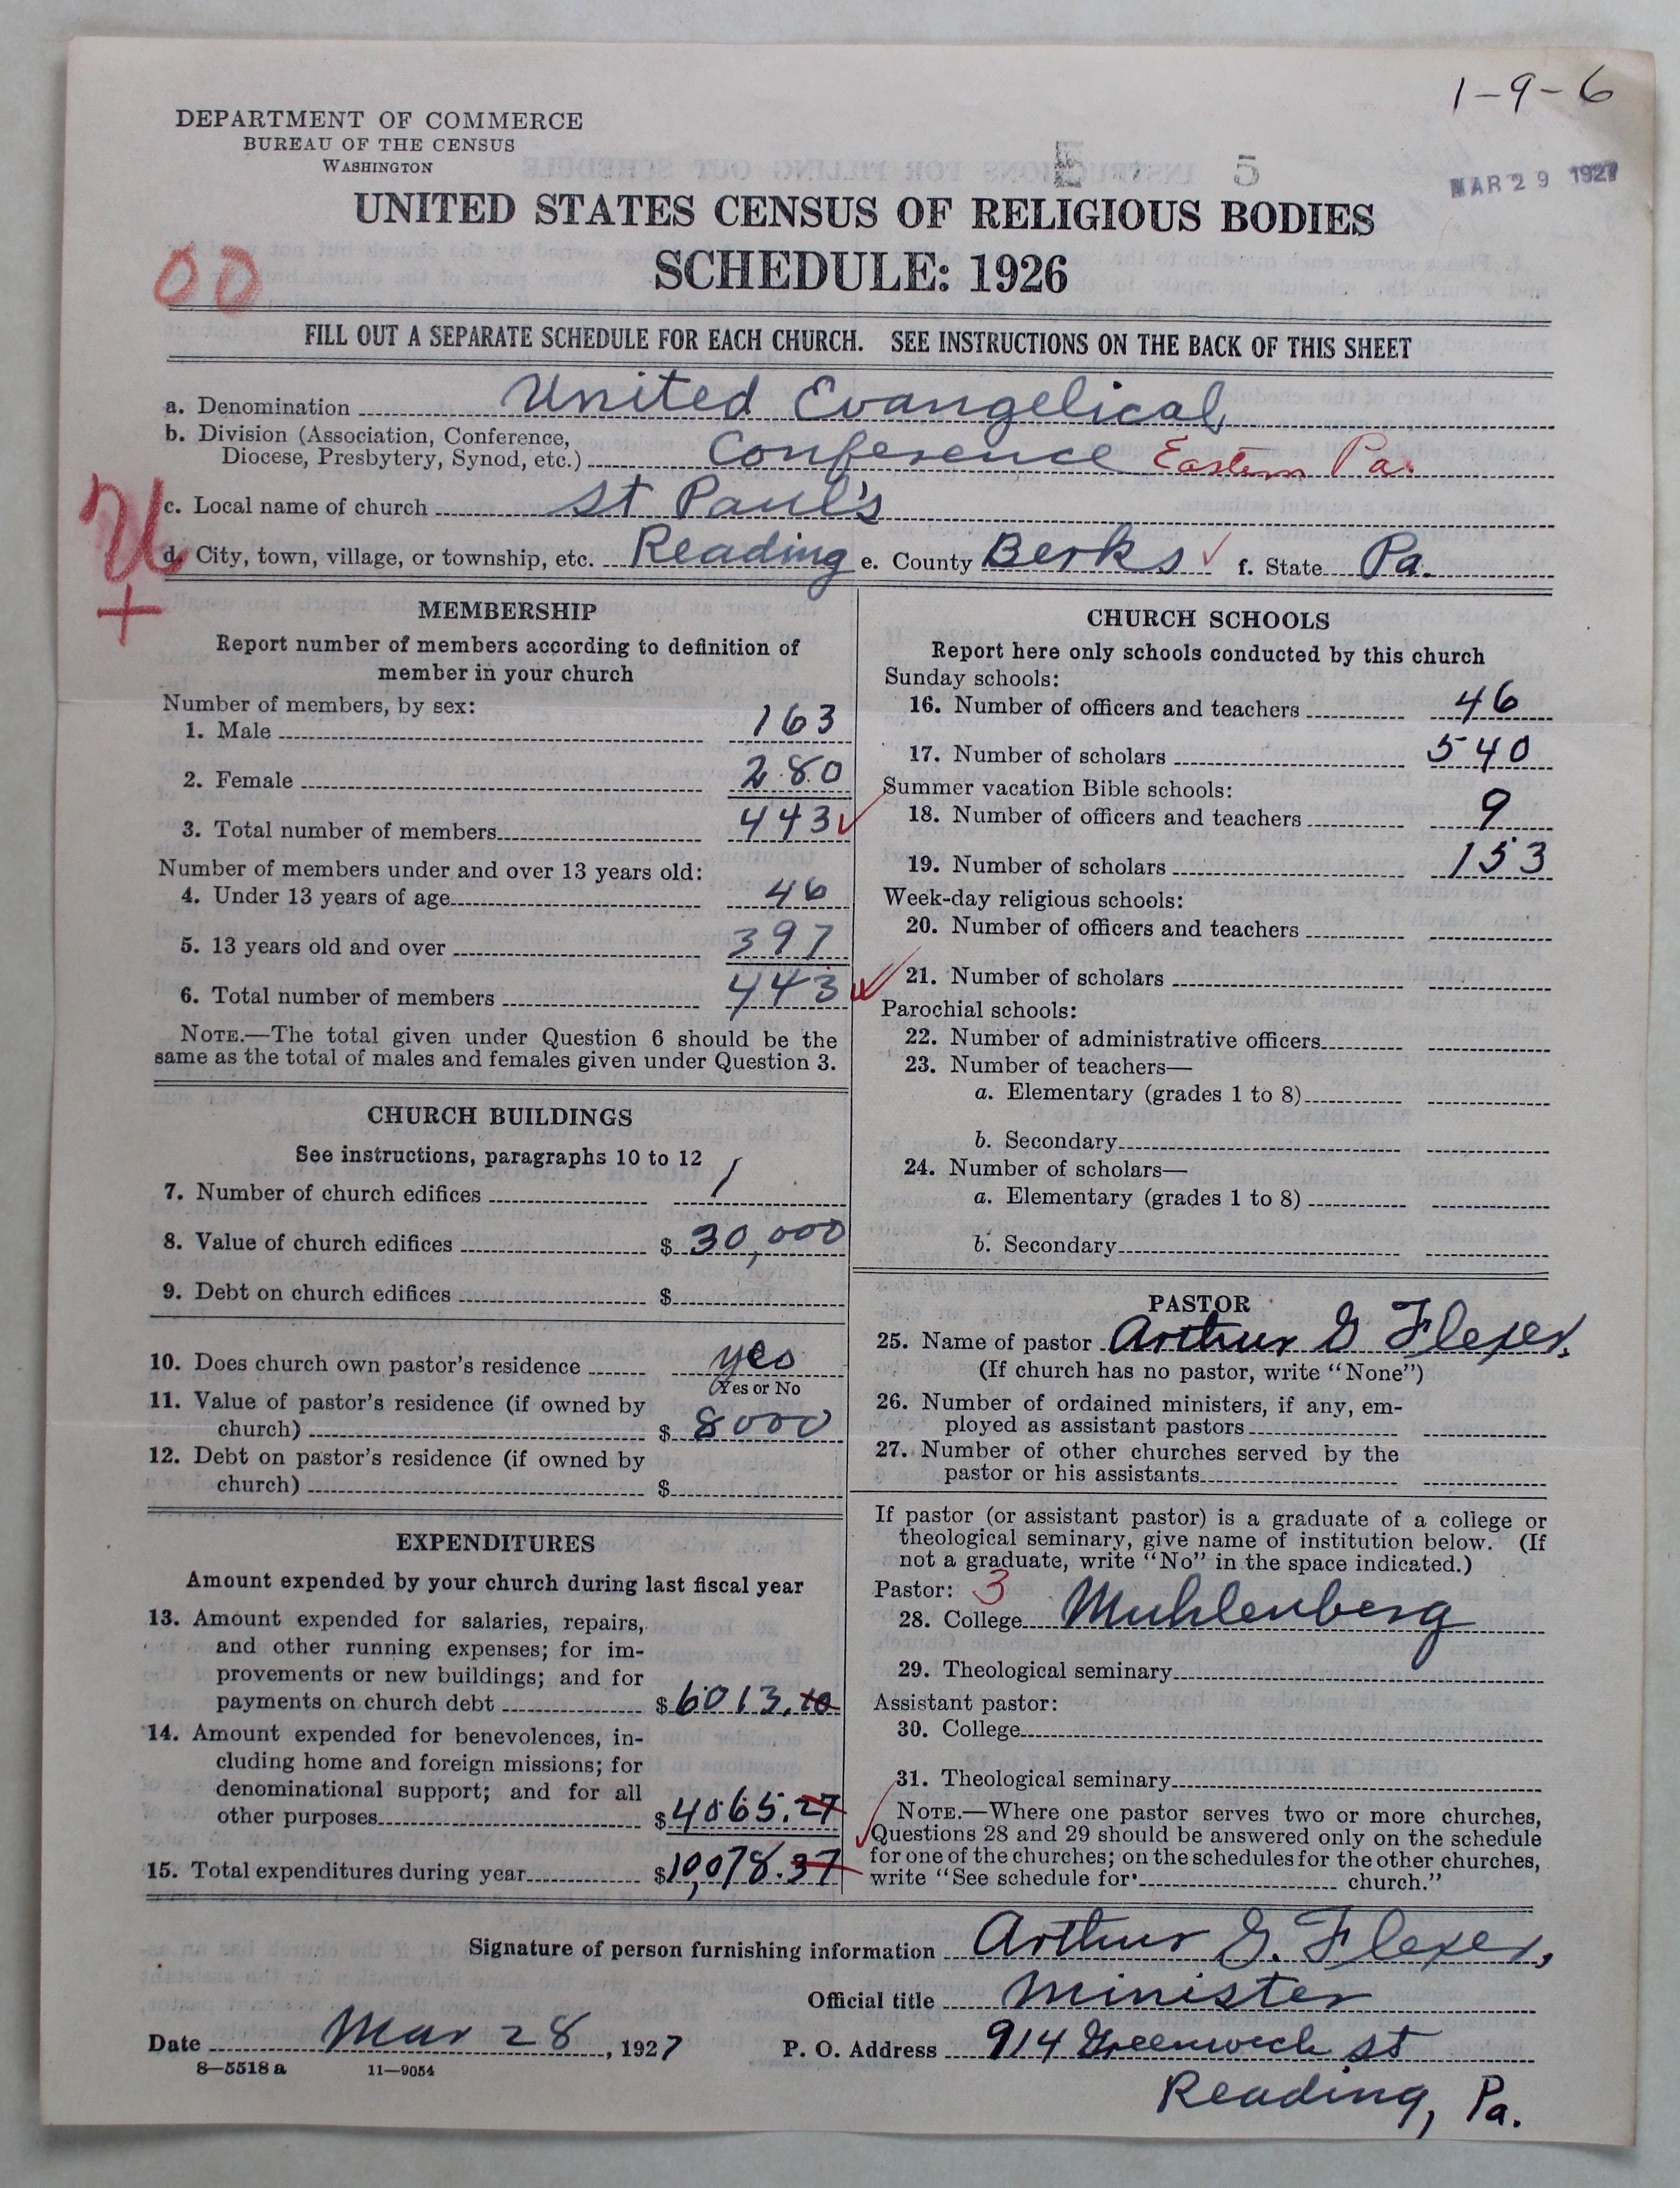 1-9-6
DEPARTMENT OF COMMERCE
BUREAU OF THE CENSUS
WASHINGTON
E 5
MAR 29 1927
UNITED STATES CENSUS OF RELIGIOUS BODIES
SCHEDULE: 1926
00
FILL OUT A SEPARATE SCHEDULE FOR EACH CHURCH. SEE INSTRUCTIONS ON THE BACK OF THIS SHEET
a. Denomination United Evangelical
b. Division (Association, Conference,
Diocese, Presbytery, Synod, etc.) Conference Eastern Pa.
c. Local name of church St Paul's
U
d. City, town, village, or township, etc. Reading e. County Berks f. State Pa.
+
MEMBERSHIP
Report number of members according to definition of
member in your church
Number of members, by sex:
1. Male 163
2. Female 280
3. Total number of members 443
Number of members under and over 13 years old:
4. Under 13 years of age 46
5. 13 years old and over 397
6. Total number of members 443
NOTE.—The total given under Question 6 should be the
same as the total of males and females given under Question 3.
CHURCH BUILDINGS
See instructions, paragraphs 10 to 12
7. Number of church edifices 1
8. Value of church edifices $ 30,000
9. Debt on church edifices $
10. Does church own pastor's residence yes
Yes or No
11. Value of pastor's residence (if owned by
church) $ 8000
12. Debt on pastor's residence (if owned by
church) $
EXPENDITURES
Amount expended by your church during last fiscal year
13. Amount expended for salaries, repairs,
and other running expenses; for im-
provements or new buildings; and for
payments on church debt $ 6013.10
14. Amount expended for benevolences, in-
cluding home and foreign missions; for
denominational support; and for all
other purposes $ 4065.27
15. Total expenditures during year $ 10,078.37
CHURCH SCHOOLS
Report here only schools conducted by this church
Sunday schools:
16. Number of officers and teachers 46
17. Number of scholars 540
Summer vacation Bible schools:
18. Number of officers and teachers 9
19. Number of scholars 153
Week-day religious schools:
20. Number of officers and teachers
21. Number of scholars
Parochial schools:
22. Number of administrative officers
23. Number of teachers—
a. Elementary (grades 1 to 8)
b. Secondary
24. Number of scholars—
a. Elementary (grades 1 to 8)
b. Secondary
PASTOR
25. Name of pastor Arthur G Flexer.
(If church has no pastor, write "None")
26. Number of ordained ministers, if any, em-
ployed as assistant pastors
27. Number of other churches served by the
pastor or his assistants
If pastor (or assistant pastor) is a graduate of a college or
theological seminary, give name of institution below. (If
not a graduate, write "No" in the space indicated.)
Pastor: 3
28. College Muhlenberg
29. Theological seminary
Assistant pastor:
30. College
31. Theological seminary
NOTE.—Where one pastor serves two or more churches,
Questions 28 and 29 should be answered only on the schedule
for one of the churches; on the schedules for the other churches,
write "See schedule for church."
Signature of person furnishing information Arthur G. Flexer,
Official title Minister
Date Mar 28, 1927 P. O. Address 914 Greenwich st
8—5518 a 11—9054
Reading, Pa.